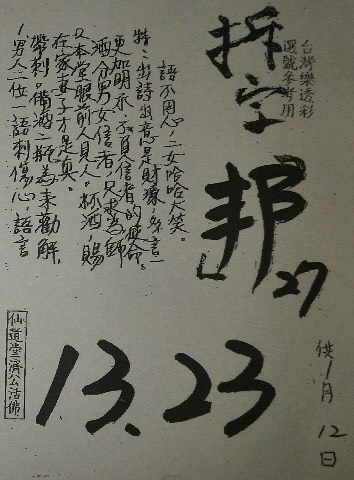 台灣樂透彩
選號參考用
拆字
邦
27
語不因心,二女哈哈大笑。
特:出詩出意是財源,多言一
更加明亦不負信者的使命。
酒分男女信者,只求為師
又本堂眼前人貝人。杯酒賜
在家妻子才是真。
帶刺。備酒二瓶為來勸解,
1.男人二位一語刺傷心語言
13、23
供1月12日
仙道堂濟公活佛